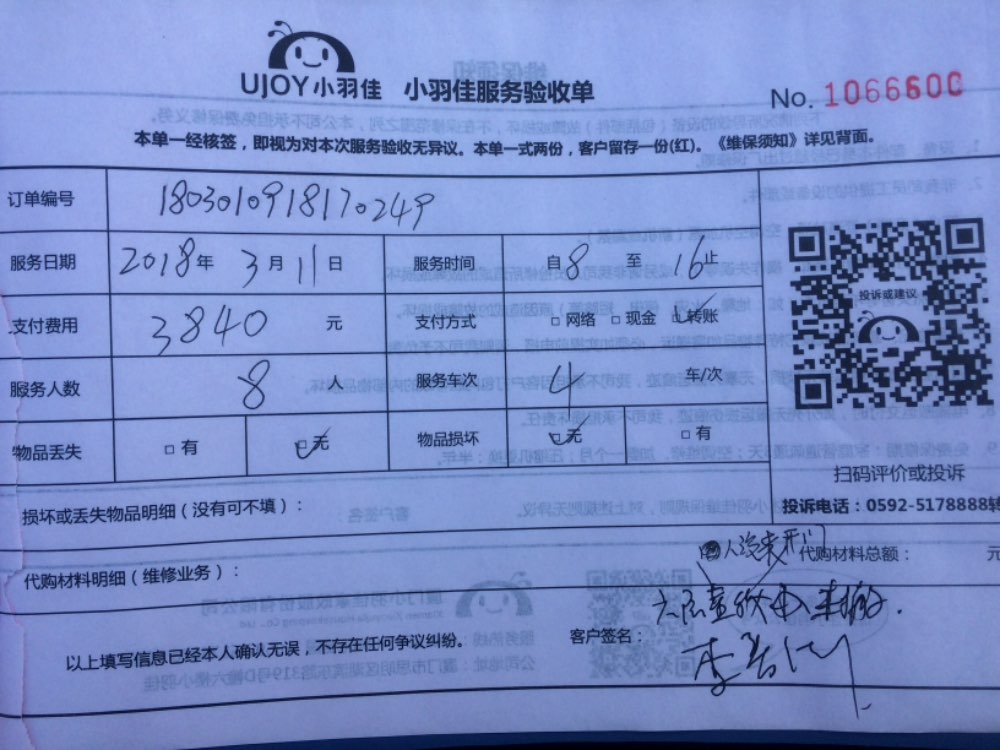 UJOY小羽佳 小羽佳服务验收单
No. 1066600
本单一经核签，即视为对本次服务验收无异议。本单一式两份，客户留存一份(红)。《维保须知》详见背面。
订单编号 1803010918170249
服务日期 2018年3月11日 服务时间 自8至16止
支付费用 3840元 支付方式 □网络 □现金 □转账
服务人数 8人 服务车次 4车/次
物品丢失 □有 □无 物品损坏 □无 □有
投诉或建议
扫码评价或投诉
投诉电话：0592-5178888转
损坏或丢失物品明细（没有可不填）：
代购材料明细（维修业务）：
代购材料总额： 元
以上填写信息已经本人确认无误，不存在任何争议纠纷。
客户签名：